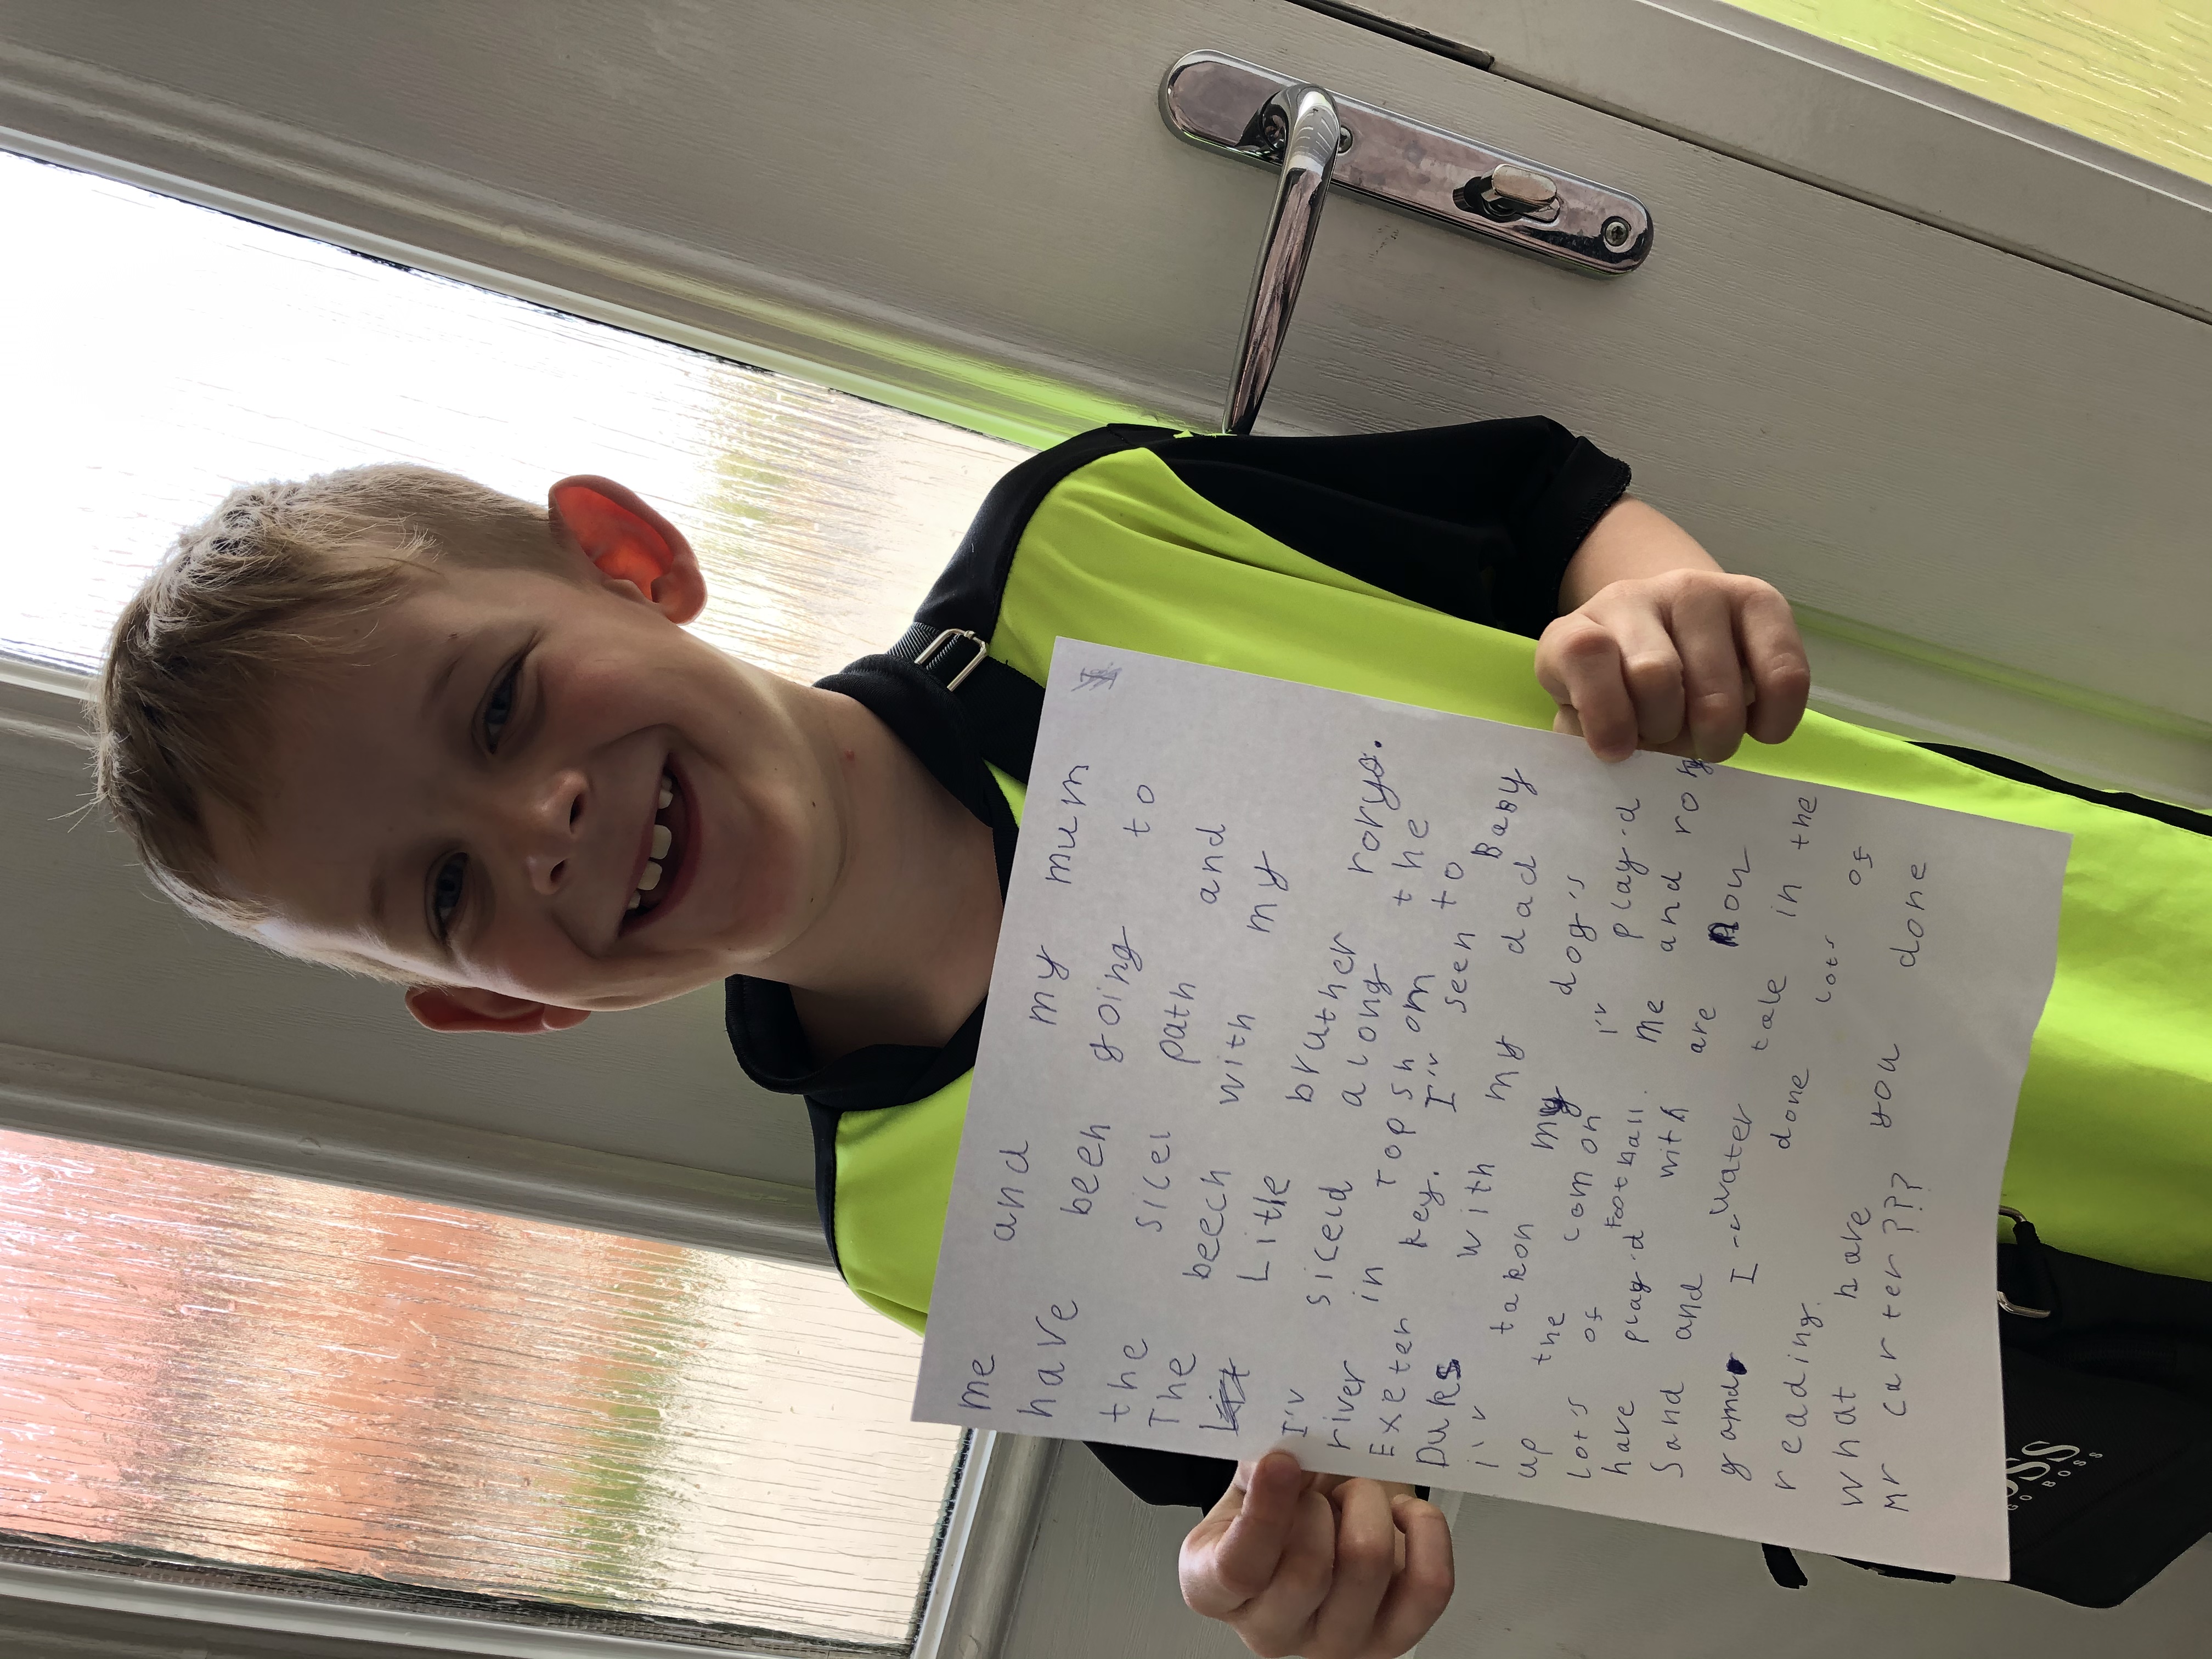 me and my mum
have been going to
the sicel path and
The beech with my
Litle bruther rory.
I'v siceld along the
river in Topshom
Exeter key. I'v seen to
Duks with my Baby
i'v takon my dad
up the comon
Lot's of dog's I'v play.d
have play.d football.
Sand and with me and rory
are nou
yamar I-wWater tale in the
reading. done Lots of
what have you done
Mr carter???
SS
GO BOSS